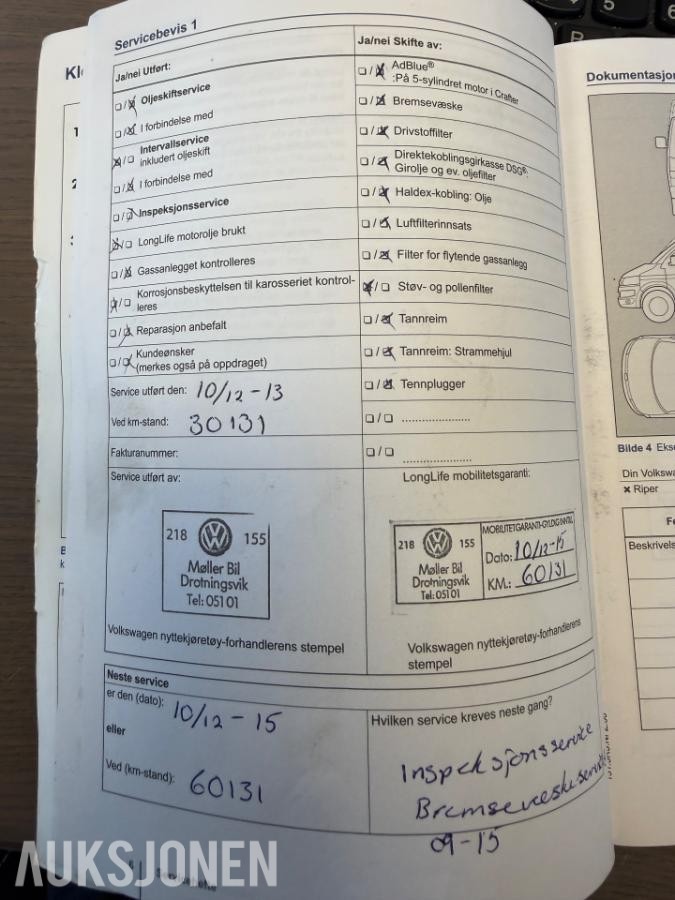 Servicebevis 1
Ja/nei Utført:
☐/☒ Oljeskiftservice
☐/☒ I forbindelse med
☒/☐ Intervallservice
inkludert oljeskift
☐/☒ I forbindelse med
☐/☒ Inspeksjonsservice
☒/☐ LongLife motorolje brukt
☐/☒ Gassanlegget kontrolleres
☒/☐ Korrosjonsbeskyttelsen til karosseriet kontrol-
leres
☐/☒ Reparasjon anbefalt
☐/☒ Kundeønsker
(merkes også på oppdraget)
Service utført den: 10/12-13
Ved km-stand: 30131
Fakturanummer:
Service utført av:
218 155
Møller Bil
Drotningsvik
Tel: 051 01
Volkswagen nyttekjøretøy-forhandlerens stempel
Ja/nei Skifte av:
☐/☒ AdBlue®
:På 5-sylindret motor i Crafter
☐/☒ Bremsevæske
☐/☒ Drivstoffilter
☐/☒ Direktekoblingsgirkasse DSG®:
Girolje og ev. oljefilter
☐/☒ Haldex-kobling: Olje
☐/☒ Luftfilterinnsats
☐/☒ Filter for flytende gassanlegg
☒/☐ Støv- og pollenfilter
☐/☒ Tannreim
☐/☒ Tannreim: Strammehjul
☐/☒ Tennplugger
☐/☐ .....................
☐/☐ .....................
LongLife mobilitetsgaranti:
218 155
Møller Bil
Drotningsvik
Tel: 051 01
MOBILITETGARANTI-GYLDIG INNTIL
Dato: 10/12-15
KM.: 60131
Volkswagen nyttekjøretøy-forhandlerens
stempel
Neste service
er den (dato): 10/12-15
eller
Ved (km-stand): 60131
Hvilken service kreves neste gang?
Inspeksjonsservice
Bremseveskeservice
09-15
Dokumentasjon
Bilde 4 Ekse
Din Volkswa
× Riper
Fø
Beskrivels
AUKSJONEN